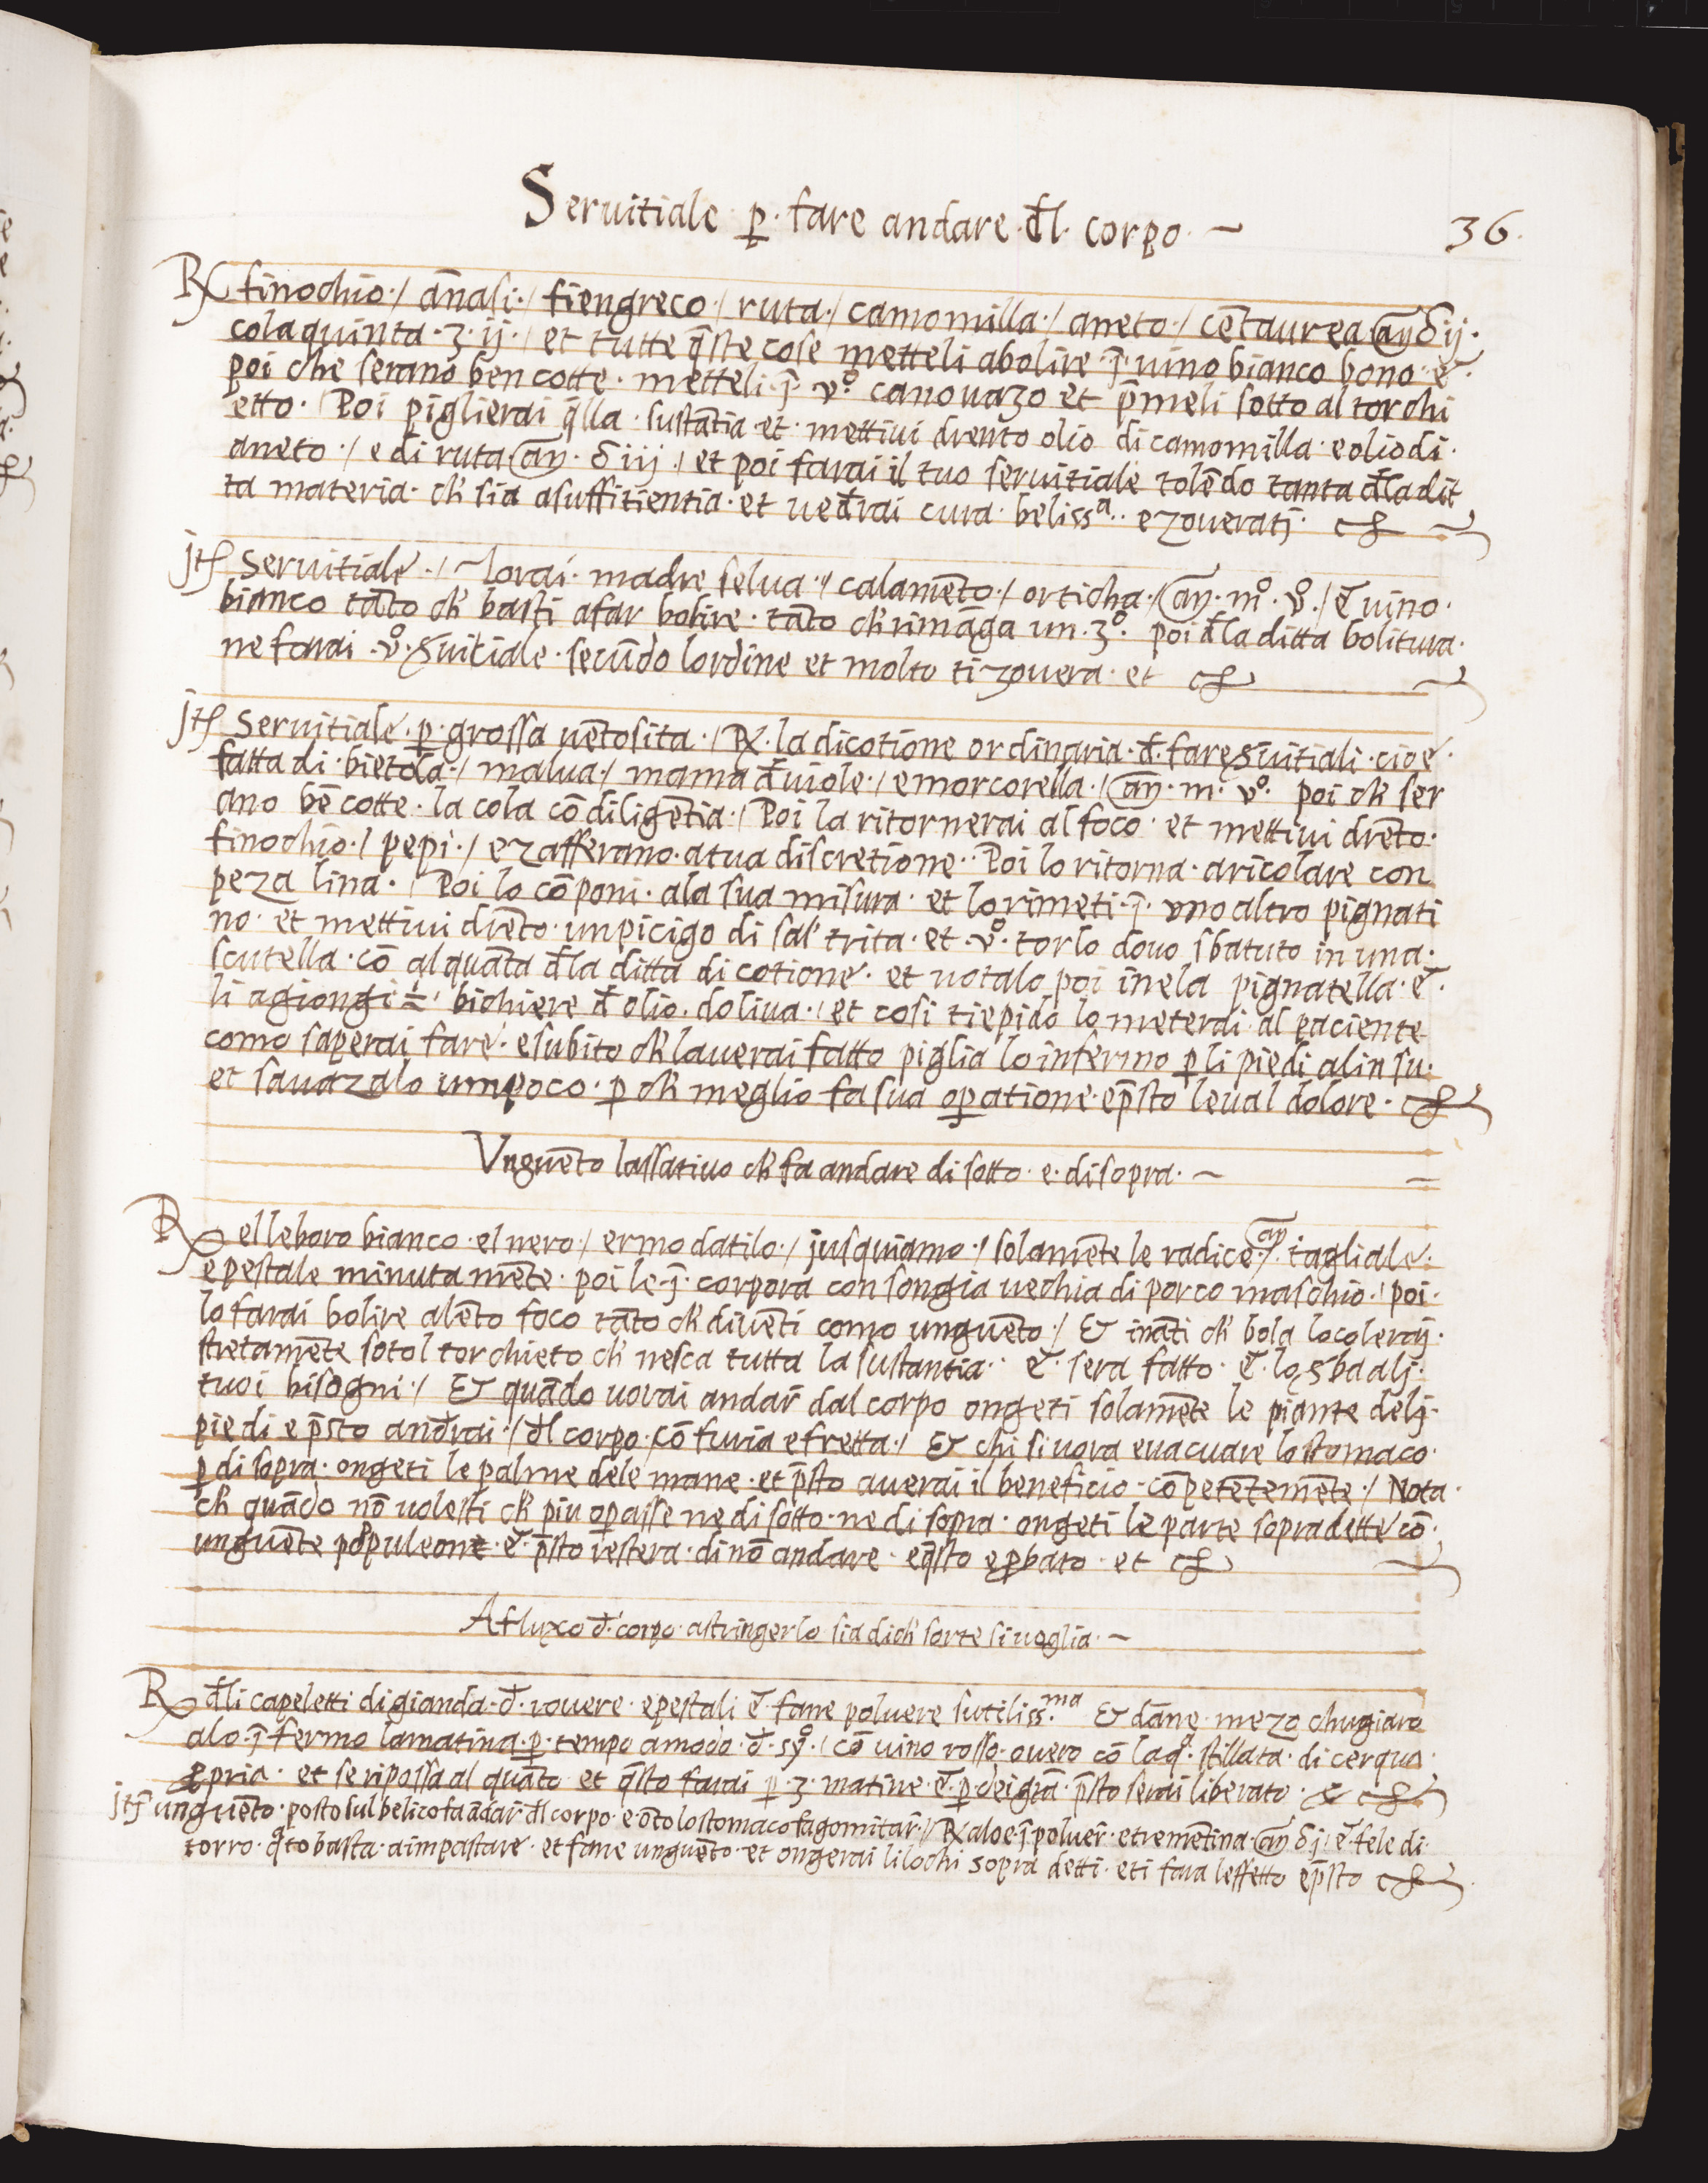 Seruitiale · p̱ · fare andare · đl · corpo · ~
36 ·
℞ finochio · / ānasi · / fiengreco · / ruta · / camomilla · / aneto · / cētaurea añ δ ij ·
colaquinta · ʒ · ij · / et tutte q̄ste cose metteli abolire · j̄ · uino bianco bono · e ·
poi che serano ben cotte · metteli · j̄ · vº · canouazo et p̄meli sotto al torchi
etto · / Poi piglierai q̄lla · sustātia · et · mettiui drento olio di camomilla · e olio di ·
aneto · / e di ruta añ · δ iij · / et poi farai il tuo seruitiale tolēdo tanta đla dit
ta materia · ch' sia asuffitientia · et ueđrai cura · belissª · · e zoueratj ·
jtꝭ seruitiale · / Torai · madre selua · / calamēto · / orticha · / añ · mº · vº · / ē uino ·
bianco tāto ch' basti afar bolire · tāto ch' rimāga un · 3º · poi đla ditta bolitura ·
ne farai · vº · suitiale · secūdo lordine et molto ti zouera · et
jtꝭ seruitiale · p̱ · grossa uētosita · / ℞ · la dicotione ordinaria · đ · fare suitiali · cioe ·
fatta di · bietola · / malua · / mama đuiole · / e morcorella · / añ · m · vº · poi ch' ser
ano bē cotte · la cola cō diligētia · / Poi la ritornerai al foco · et mettiui drēto ·
finochio · / pepi · / e zafferano · a tua discretione · · Poi lo ritorna · aricolare con
peza lina · / Poi lo cō poni · ala sua misura · et lo rimeti · j̄ · vno altro pignati
no · et mettiui drēto · un picigo di sal trita · et · vº · torlo douo sbatuto in una ·
scutella · cō alquāta đla ditta dicotione · et uotalo poi inela pignatella · ē ·
li agiongi ÷ bichiere đ olio · doliua · / et cosi tiepido lo meterai · al paciente
como saperai fare · e subito ch' lauerai fatto piglia lo infermo p̱ li piedi alin su ·
et sauazalo un poco · p̱ ch' meglio fa sua op̱atione · ep̄sto leual dolore ·
Vnguēto lassatiuo ch' fa andare di sotto · e · di sopra · ~
℞ elleboro bianco · el nero · / ermo datilo · / jusquiamo · / solamēte le radice · / añ tagliale ·
e pestale minutamēte · poi le · j̄ · corpora con songia uechia di porco maschio · / poi ·
lo farai bolire alēto foco tāto ch' diuēti como unguēto · / Et ināti ch' bola lo colerai ·
stretamēte sotol torchieto ch' nesca tutta la sustantia · · ē · sera fatto · ē · lo sba alj ·
tuoi bisogni · / Et quādo uorai andar̄ dal corpo ongeti solamēte le piante delj ·
piedi e p̄sto anđrai · / đl corpo · cō furia e fretta · / Et chi si uora euacuare lo stomaco ·
p̱ di sopra · ongeti le palme dele mane · et p̄sto auerai il beneficio · cō petētemēte · / Nota ·
ch' quādo nō uolesti ch' piu op̱asse ne di sotto · ne di sopra · ongeti le parte sopra dette cō ·
unguēte populeone · ē · p̄sto restera · di nō andare · e q̄sto e p̱bato · et
A fluxo đ · corpo · astringerlo sia di ch' sorte si uoglia · ~
℞ đli capeletti di gianda · đ · rouere · e pestali ē · fane poluere sutiliss · ma Et dāne · mezo chugiaro
alo · j̄ · fermo la matina · p̱ · tempo a modo · đ · syº · / cō uino rosso · ouero cō laqª · stillata · di cerqua ·
p̱pria · et se ripossa al quāto · et q̄sto farai p̱ · 3 · matine · ē · p̱ dei grā · p̄sto serai liberato · &
jtꝭ unguēto · posto sul belico fa ādar̄ đl corpo · e ōto lo stomaco fa gomitar̄ · / ℞ aloe · j̄ poluer̄ · e trementina · añ δ j · / ē · fele di ·
torro · qªto basta · a impastare · et fane unguēto · et ongerai li lochi sopra detti · e ti fara leffetto ep̄sto